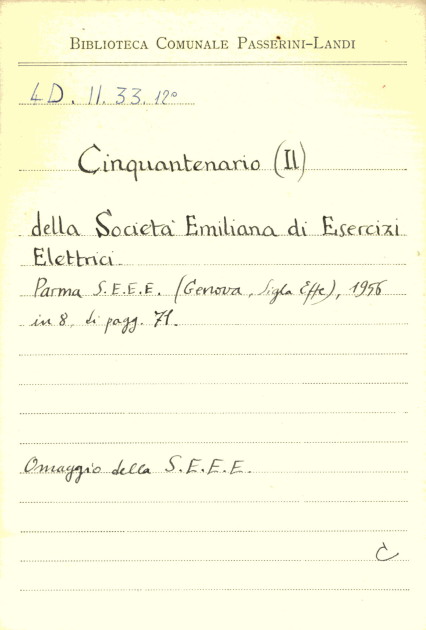 BIBLIOTECA COMUNALE PASSERINI-LANDI
4D. II. 33. 12°
Cinquantenario (Il)
della Società Emiliana di Esercizi
Elettrici.
Parma S.E.E.E. (Genova, Sigla Effe), 1956
in 8, di pagg. 71.
Omaggio della S.E.E.E.
C